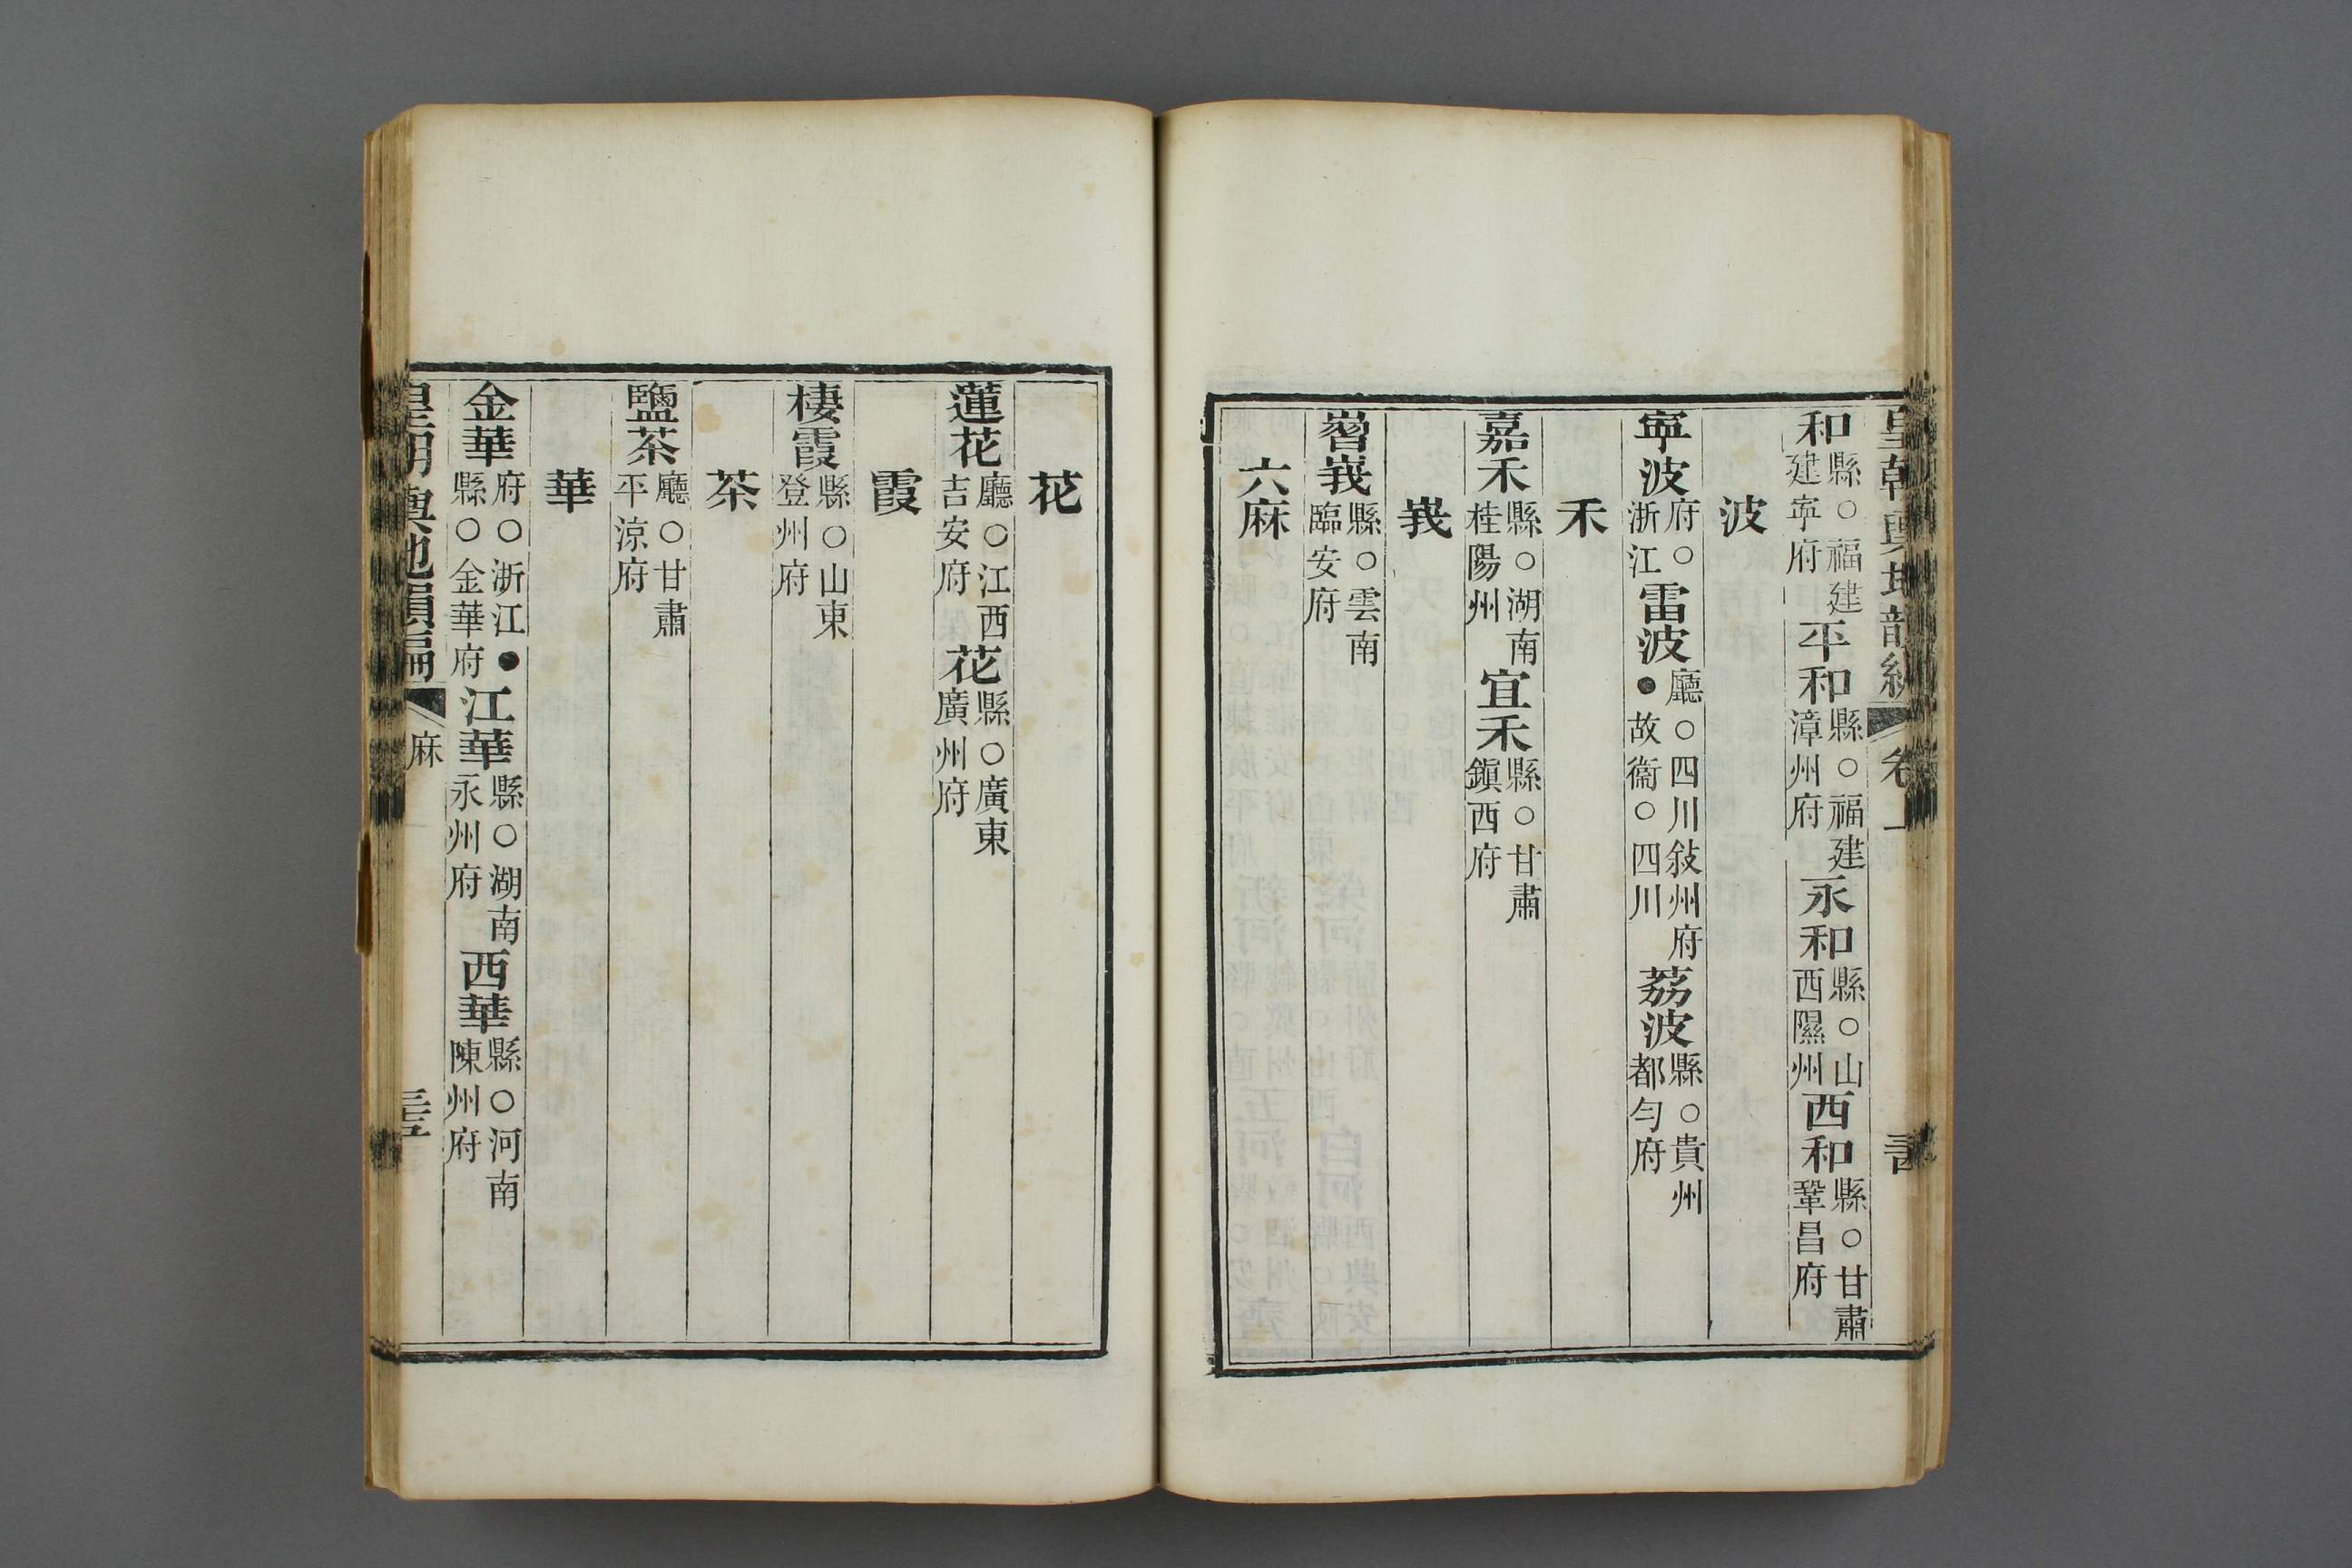 皇朝輿地韻編 卷上
和縣○福建建寧府平和縣○福建漳州府永和縣○山西隰州西和縣○甘肅鞏昌府
波
寧波府○浙江雷波廳○四川敍州府●故衞○四川荔波縣○貴州都勻府
禾
嘉禾縣○湖南桂陽州宜禾縣○甘肅鎭西府
峩
嶍峩縣○雲南臨安府
六麻
花
蓮花廳○江西吉安府花縣○廣東廣州府
霞
棲霞縣○山東登州府
茶
鹽茶廳○甘肅平涼府
華
金華府○浙江●縣○金華府江華縣○湖南永州府西華縣○河南陳州府
皇朝輿地韻編 麻